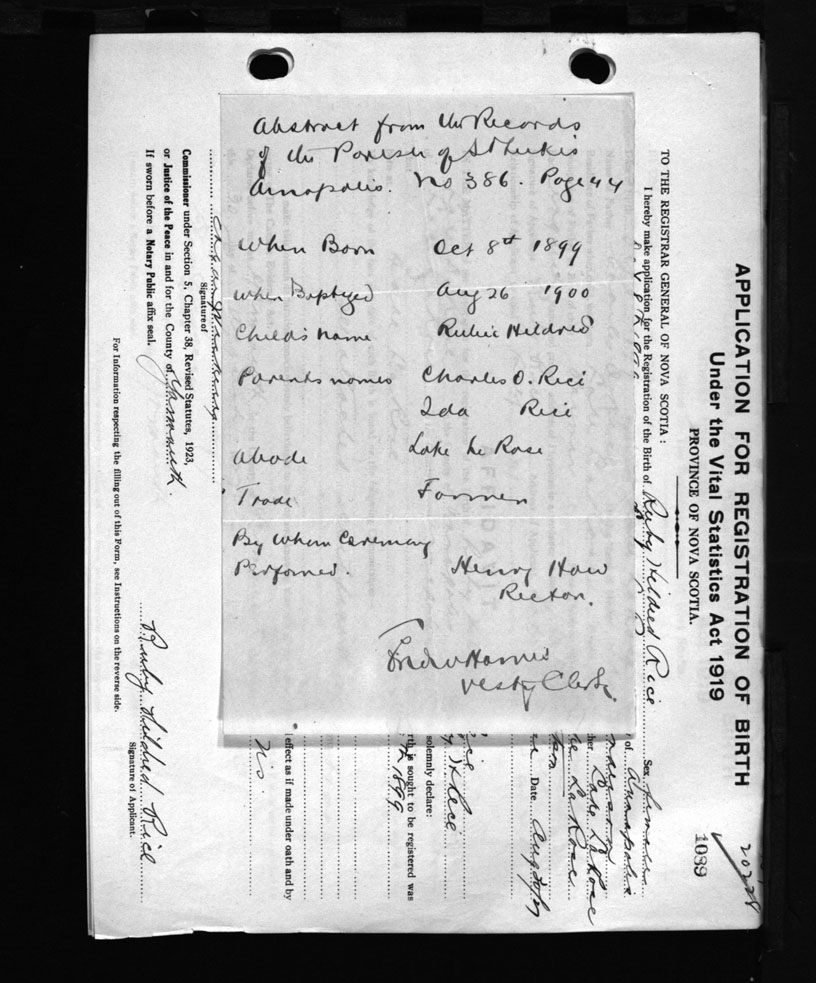 Abstract from the Records
of the Parish of St Lukes
Annapolis. No 386. Page 44
When Born Oct 8th 1899
When Baptized Aug 26 1900
Childs name Rubie Hildred
Parents names Charles O. Rice
Ida Rice
Abode Lake La Rose
Trade Farmer
By Whom Ceremony
Performed. Henry How
Rector.
Vestry Clerk.
APPLICATION FOR REGISTRATION OF BIRTH
Under the Vital Statistics Act 1919
PROVINCE OF NOVA SCOTIA.
20228
1089
TO THE REGISTRAR GENERAL OF NOVA SCOTIA:
I hereby make application for the Registration of the Birth of Ruby Hildred Rice Sex female
of Annapolis
ther Lake LaRose
La Rose
Date Aug
solemnly declare:
rth is sought to be registered was
1899
l effect as if made under oath and by
his
Signature of
Commissioner under Section 5, Chapter 38, Revised Statutes, 1923,
or Justice of the Peace in and for the County of Yarmouth.
If sworn before a Notary Public affix seal.
Ruby Hildred Rice
Signature of Applicant.
For Information respecting the filling out of this Form, see Instructions on the reverse side.